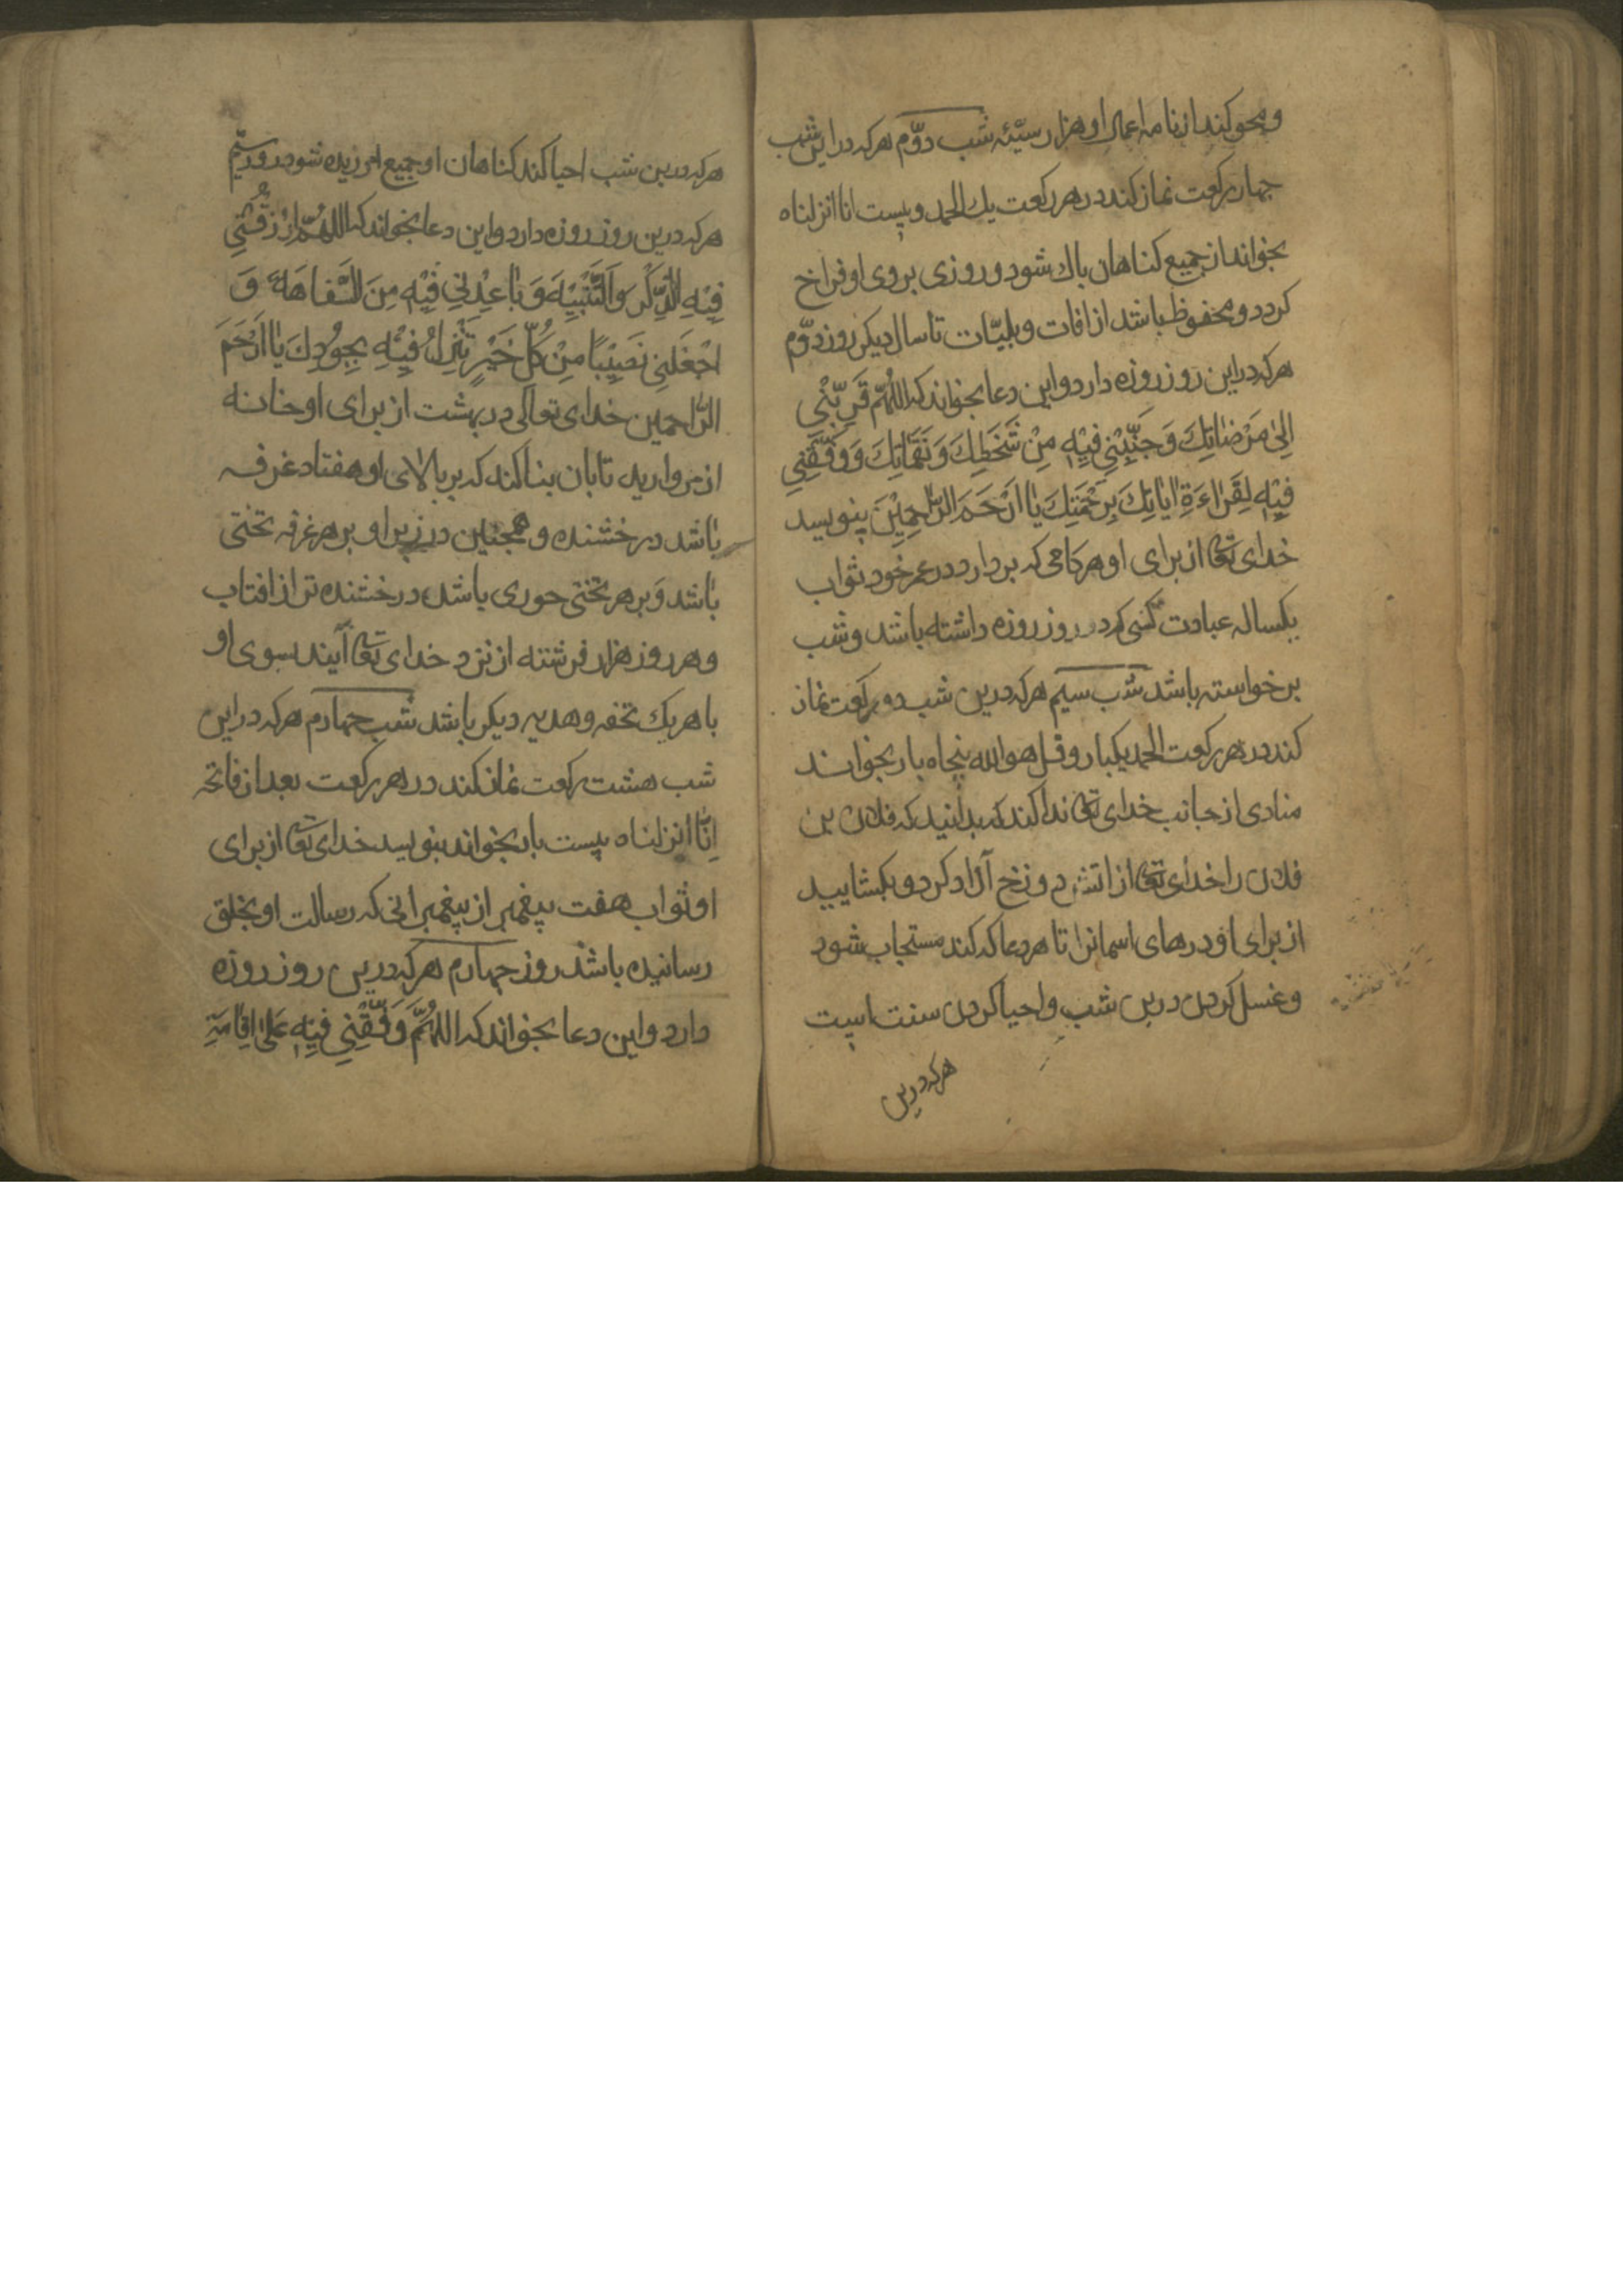 ومحو کند از نامه اعمال او هزار سیّئه شب دوّم هرکه دراین شب
چهار رکعت نماز کند درهر رکعت یك الحمد و بیست انا انزلناه
بخواند از جمیع کناهان پاك شود و روزی بروی او فراخ
کردد و محفوظ باشد از افات و بلیّات تا سال دیکر روز دوّم
هرکه دراین روز روزه دارد و این دعا بخواند که اللهُمّ قَرِّبْنِي
اِلىٰ مَرْضٰاتِكَ وَجَنِّبْنِي فِيْهِ مِنْ سَخَطِكَ وَنَقَمٰاتِكَ وَوَفِّقْنِي
فِيْهِ لِقَرٰاءَةِ اٰيٰاتِكَ بِرَحْمَتِكَ يٰا اَرْحَمَ الرّٰحِمِيْنَ بنویسد
خدای تعا از برای او هرکامی که بردارد در عمر خود ثواب
یکساله عبادت کسی که در روز روزه داشته باشد و شب
برخواسته باشد شب سیم هرکه درین شب دو رکعت نماز
کند درهر رکعت الحمد یکبار و قل هو الله پنجاه بار بخواند
منادی از جانب خدای تعا ندا کند که بدانید که فلان بن
فلان را خدای تعا از اتش دوزخ آزاد کرد و بکشایید
از برای او درهای اسمانرا تا هر دعا که کند مستجاب شود
و غسل کردن درین شب و احیا کردن سنت است
هرکه درین
هرکه درین شب احیا کند کناهان او جمیع امرزیده شود روز سیّم
هرکه درین روز روزه دارد و این دعا بخواند که اللهُمّ ارْزُقْنِي
فِيْهِ الذِّكْرَ وَالتَّنْبِيْهَ وَبٰاعِدْنِي فِيْهِ مِنَ السَّفٰاهَةِ وَ
اجْعَلْنِي نَصِيْبًا مِنْ كُلِّ خَيْرٍ تُنْزِلُ فِيْهِ بِجُوْدِكَ يٰا اَرْحَمَ
الرّاحمین خدای تعالی در بهشت از برای او خانه
از مروارید تابان بنا کند که بر بالای او هفتاد غرفه
باشد درخشنده و همچنین در زیر او بر هر غرفه تختی
باشد و بر هر تختی حوری باشد درخشنده تر از افتاب
و هر روز هزار فرشته از نزد خدای تعا آیند بسوی او
با هریك تحفه و هدیه دیکر باشد شب چهارم هرکه دراین
شب هشت رکعت نماز کند در هر رکعت بعد از فاتحه
اِنّا انزلناه بیست بار بخواند بنویسد خدای تعا از برای
او ثواب هفت پیغمبر از پیغمبرانی که رسالت او بخلق
رسانیده باشد روز چهارم هرکه درین روز روزه
دارد و این دعا بخواند که اللهُمَّ وَفِّقْنِي فِيْهِ عَلىٰ اِقٰامَةِ